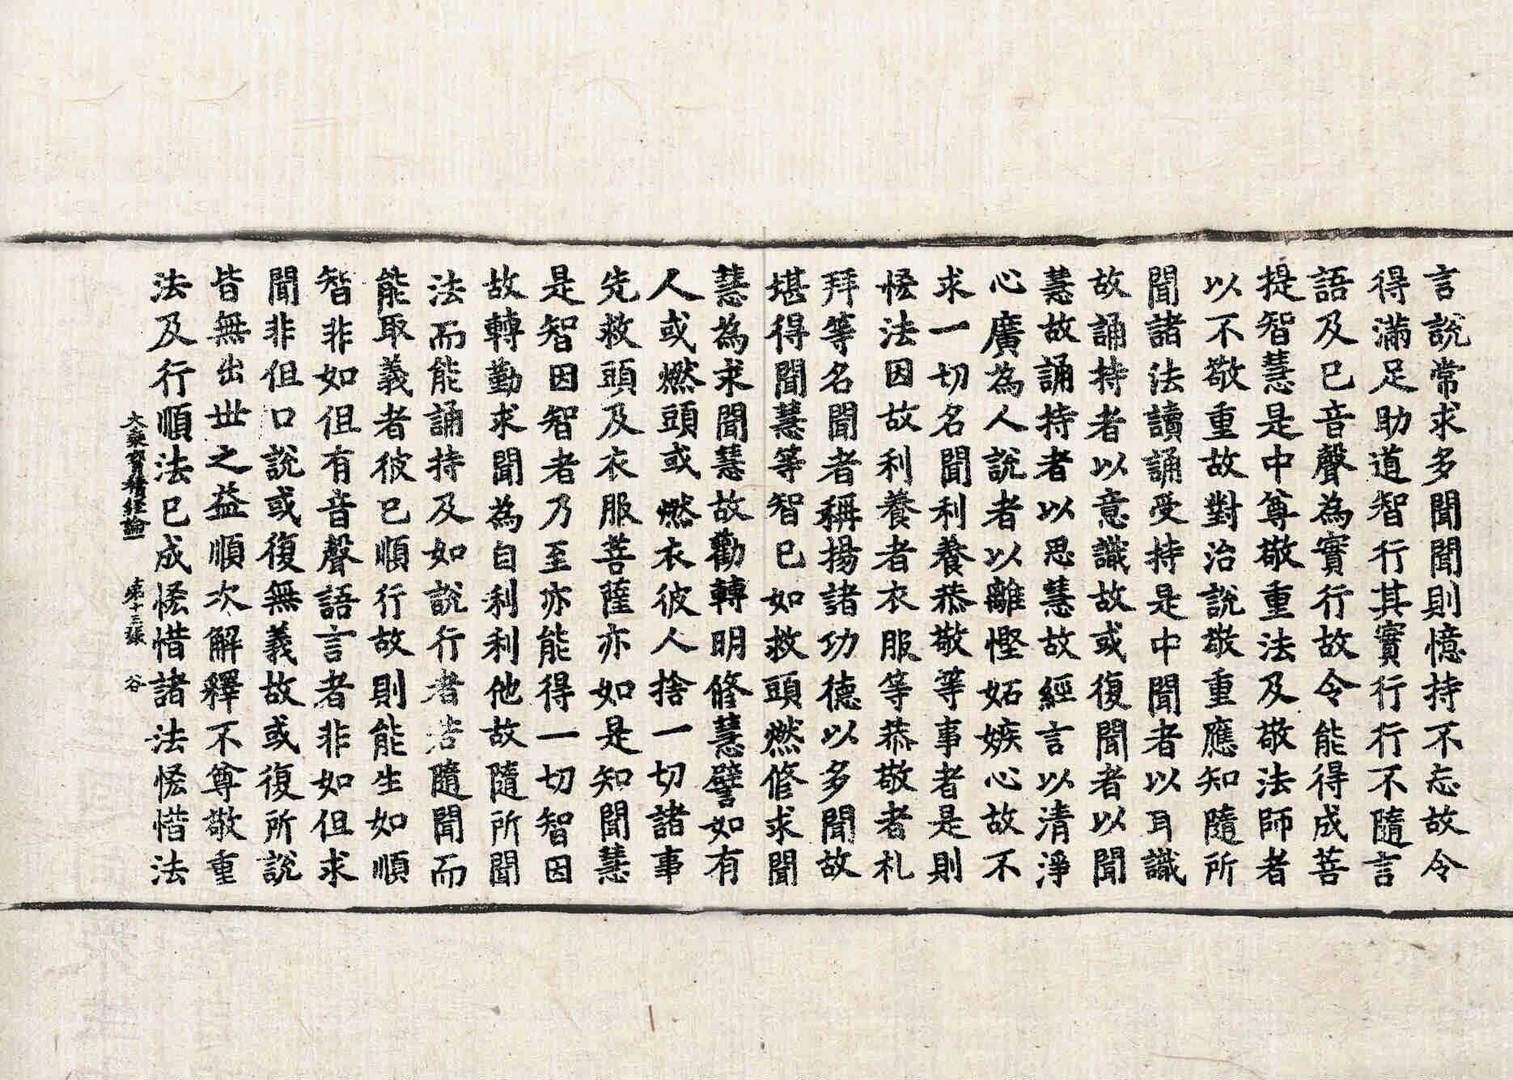 言說常求多聞聞則憶持不忘故令
得滿足助道智行其實行行不隨言
語及已音聲為實行故令能得成菩
提智慧是中尊敬重法及敬法師者
以不敬重故對治說敬重應知隨所
聞諸法讀誦受持是中聞者以耳識
故誦持者以意識故或復聞者以聞
慧故誦持者以思慧故經言以清淨
心廣為人說者以離慳妬嫉心故不
求一切名聞利養恭敬等事者是則
悋法因故利養者衣服等恭敬者礼
拜等名聞者稱揚諸功德以多聞故
堪得聞慧等智已如救頭燃修求聞
慧為求聞慧故勸轉明修慧譬如有
人或燃頭或燃衣彼人捨一切諸事
先救頭及衣服菩薩亦如是知聞慧
是智因智者乃至亦能得一切智因
故轉勤求聞為自利利他故隨所聞
法而能誦持及如說行者若隨聞而
能取義者彼已順行故則能生如順
智非如但有音聲語言者非如但求
聞非但口說或復無義故或復所說
皆無出世之益順次解釋不尊敬重
法及行順法已成悋惜諸法悋惜法
大乘寶積經論一 第十三張 谷